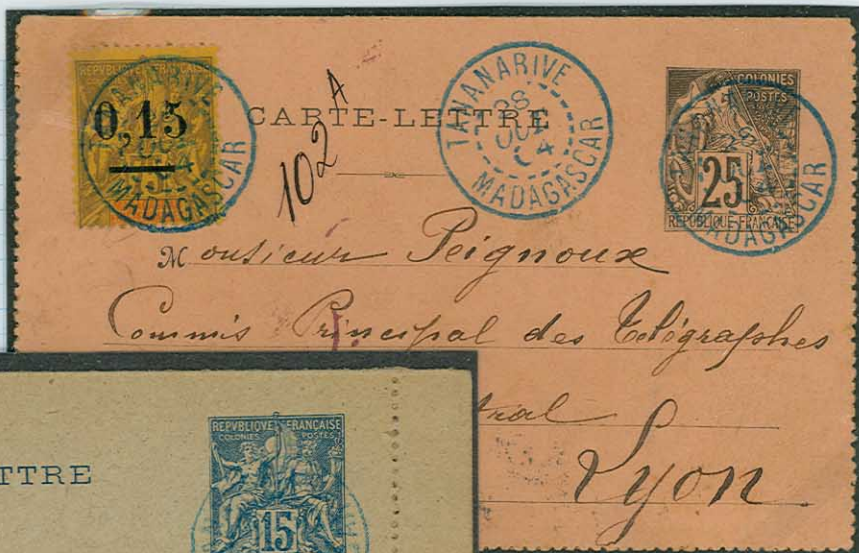 REPVBLIQVE FRANCAISE
0,15
TANANARIVE
MADAGASCAR
CARTE-LETTRE
102 A
TANANARIVE
28
04
MADAGASCAR
COLONIES
POSTES
25
RÉPUBLIQUE FRANÇAISE
MADAGASCAR
Monsieur Peignoux
Commis Principal des Télégraphes
tral
Lyon
TTRE
REPVBLIQVE FRANÇAISE
COLONIES POSTES
15